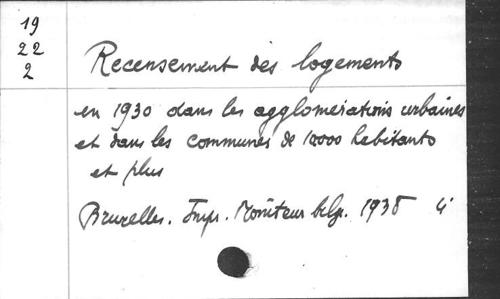 19
22
2
Recensement des logements
en 1930 dans les agglomérations urbaines
et dans les communes de 10000 habitants
et plus
Bruxelles. Imp. Moniteur belge. 1935 4°